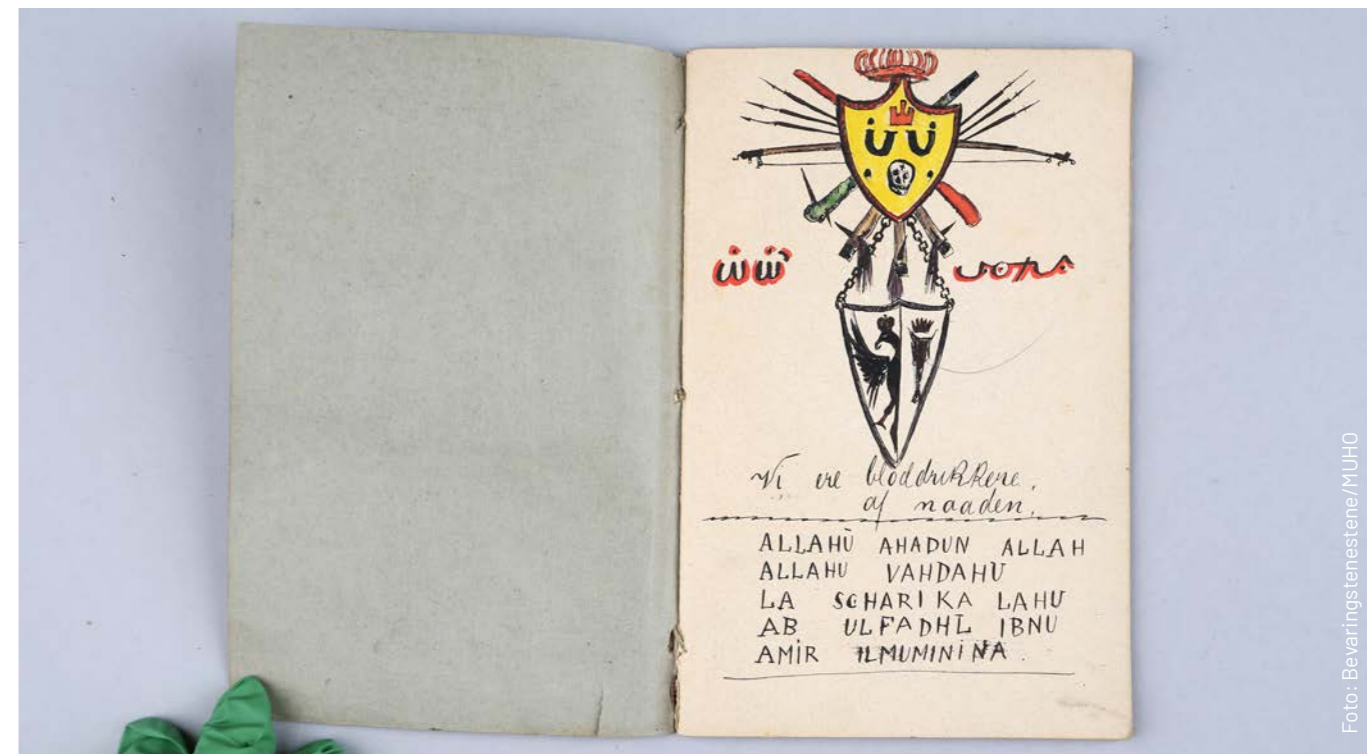 Vi ere bloddrikkere
af naaden.
ALLAHÙ AHADUN ALLAH
ALLAHU VAHDAHU
LA SCHARI KA LAHU
AB ULFADHL IBNU
AMIR ILMUMINI NA.
Foto: Bevaringstenestene/MUHO